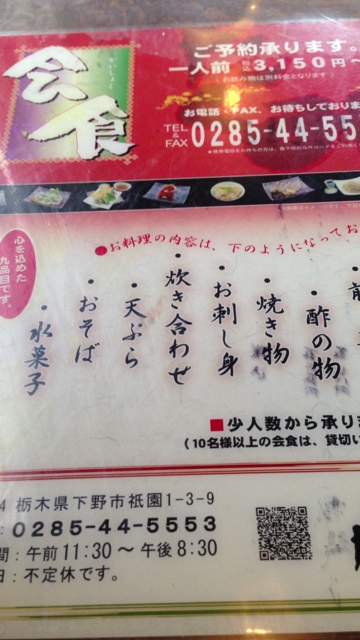 会食
かいしょく
ご予約承ります。
一人前 税込 3,150円〜
(お飲み物は別料金となります)
お電話・FAX、お待ちしておりま
TEL & FAX 0285-44-555
心を込めた
九品目です。
●お料理の内容は、下のようになってお
・酢の物
・焼き物
・お刺し身
・炊き合わせ
・天ぷら
・おそば
・水菓子
■少人数から承りま
(10名様以上の会食は、貸切い
4 栃木県下野市祇園1-3-9
: 0285-44-5553
間:午前11:30〜午後8:30
日:不定休です。